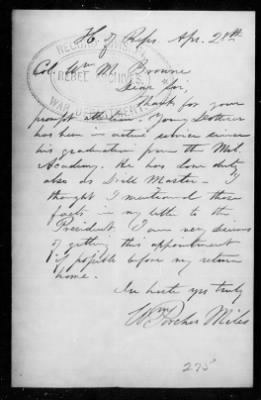 H. of Reps. Apr. 28th
RECORD DIVISION
REBEL ARCHIVES
WAR DEPARTMENT
Col. Wm. M. Browne
Dear Sir,
Thanks for your
prompt attention. Young
has been in active service since
his graduation from the Mil.
Academy. He has done duty
also as Drill Master - I
thought I mentioned these
facts in my letter to the
President. I am very desirous
of getting this appointment
if possible before my return
home.
In haste yrs truly
Wm Porcher Miles
275